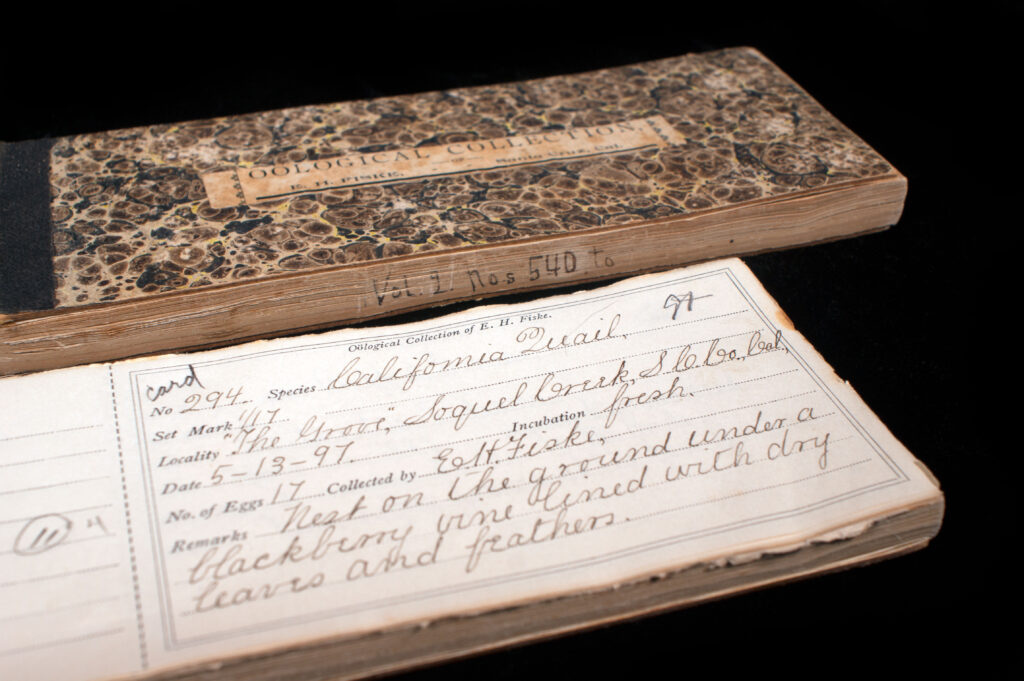 OOLOGICAL COLLECTION
OF
E. H. FISKE. Santa Cruz, Cal.
Vol. 2 Nos 540 to
Oölogical Collection of E. H. Fiske.
card
No 294. Species California Quail.
Set Mark 1/17
Locality "The Grove", Soquel Creek, S. C. Co., Cal.,
Date 5-13-97. Incubation fresh.
No. of Eggs 17 Collected by E H Fiske,
Remarks Nest on the ground under a
blackberry vine lined with dry
leaves and feathers.
11